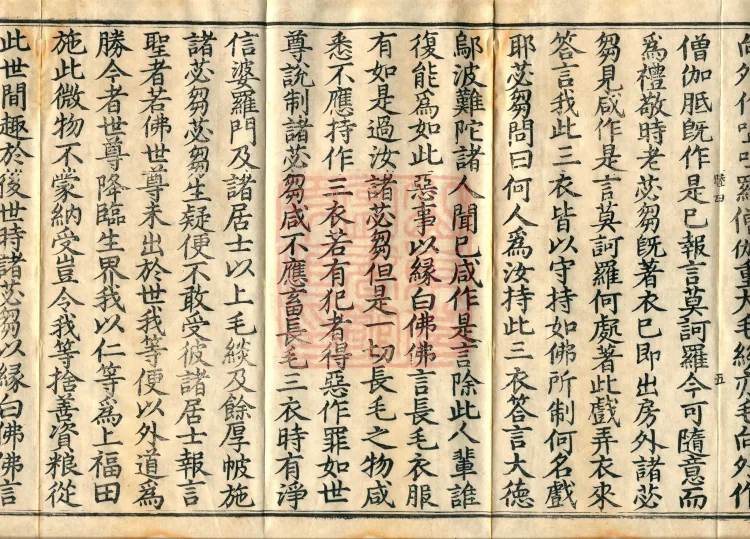 僧伽胝既作是已報言莫訶羅今可隨意而
為禮敬時老苾芻既著衣已即出房外諸苾
芻見咸作是言莫訶羅何處著此戲弄衣來
答言我此三衣皆以守持如佛所制何名戲
耶苾芻問曰何人為汝持此三衣答言大德
鄔波難陀諸人聞已咸作是言除此人輩誰
復能為如此惡事以緣白佛佛言長毛衣服
有如是過汝諸苾芻但是一切長毛之物咸
悉不應持作三衣若有犯者得惡作罪如世
尊說制諸苾芻咸不應畜長毛三衣時有淨
信婆羅門及諸居士以上毛緂及餘厚帔施
諸苾芻苾芻生疑便不敢受彼諸居士報言
聖者若佛世尊未出於世我等便以外道為
勝今者世尊降臨生界我以仁等為上福田
施此微物不蒙納受豈令我等捨善資粮從
此世間趣於後世時諸苾芻以緣白佛佛言